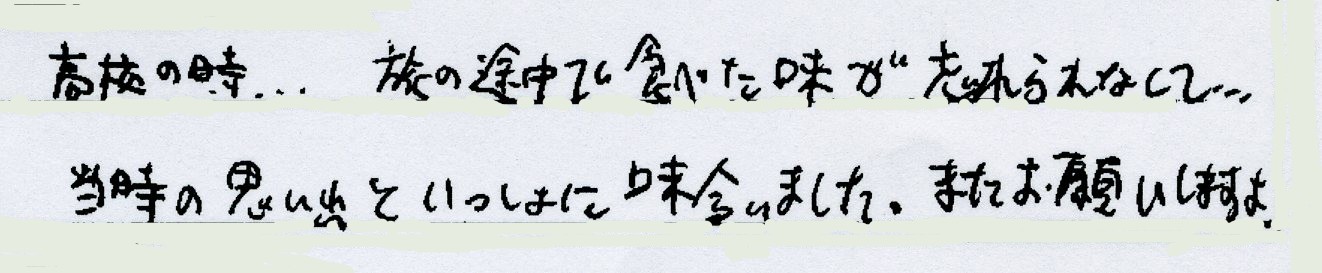 高校の時... 旅の途中で食べた味が忘れられなくて...
当時の思い出といっしょに味合いました。またお願いしますよ.